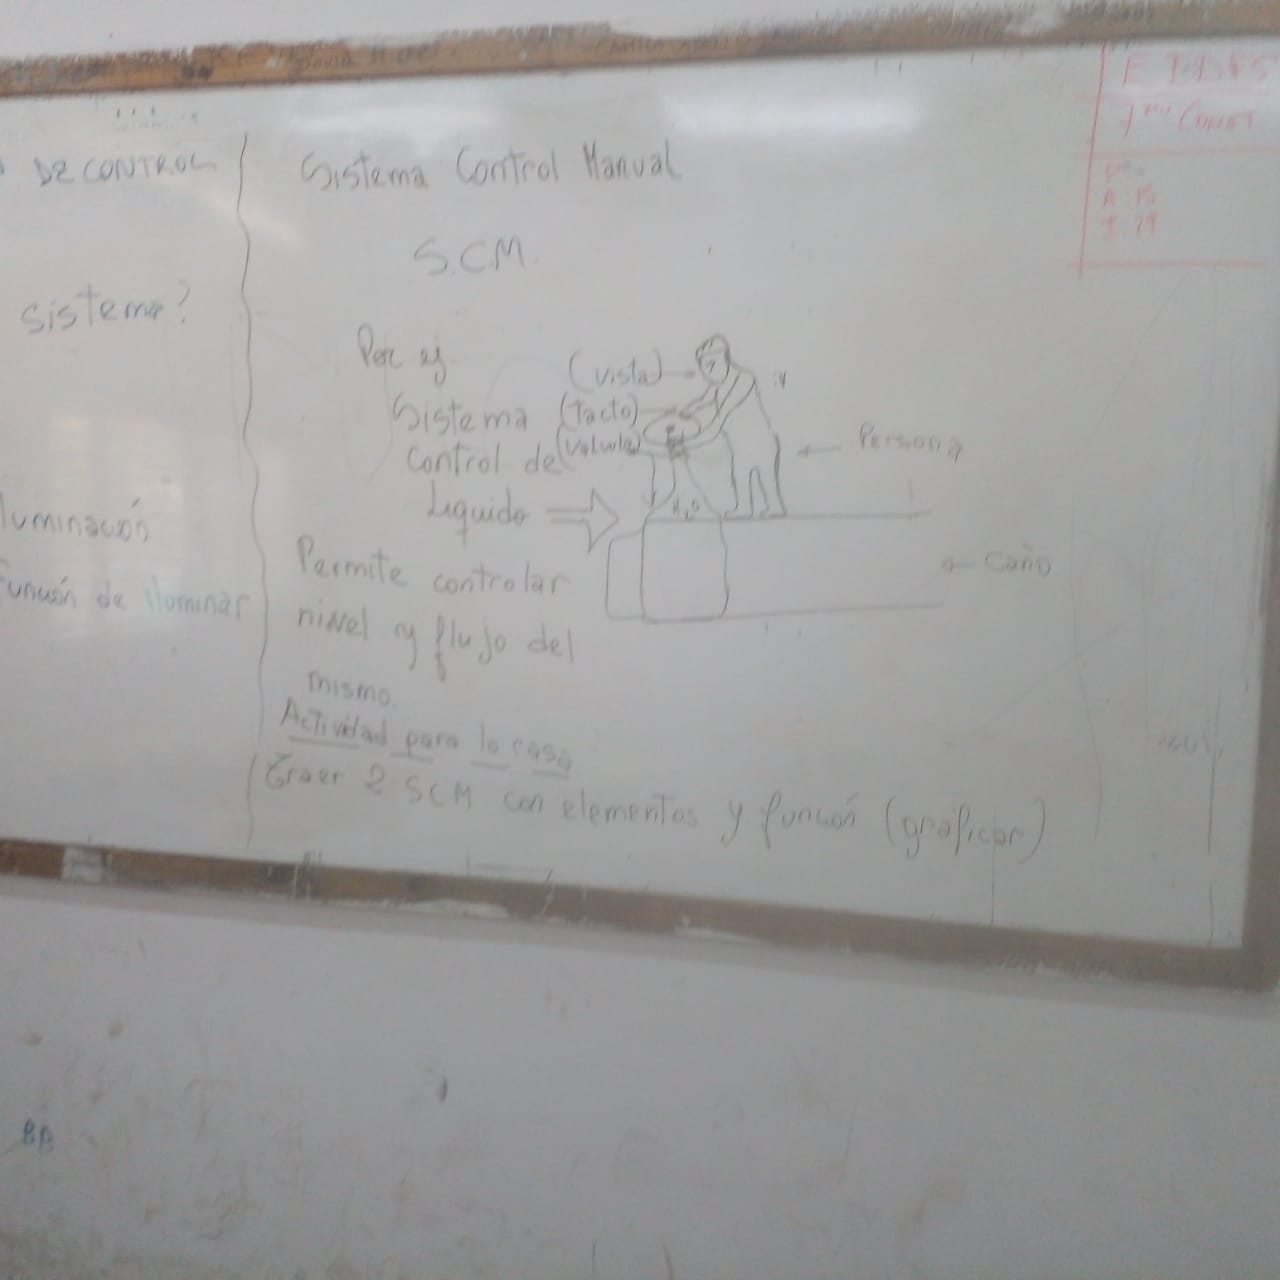 DE CONTROL
sistema?
Iluminación
función de iluminar
Sistema Control Manual
S.C.M.
Por ej
Sistema
control de
Liquido
(vista)
(Tacto)
(valvula)
H2O
Persona
caño
Permite controlar
nivel y flujo del
mismo.
Actividad para la casa
Traer 2 SCM con elementos y función (graficar)
:v
1 CONST
A 15
I 29
BB